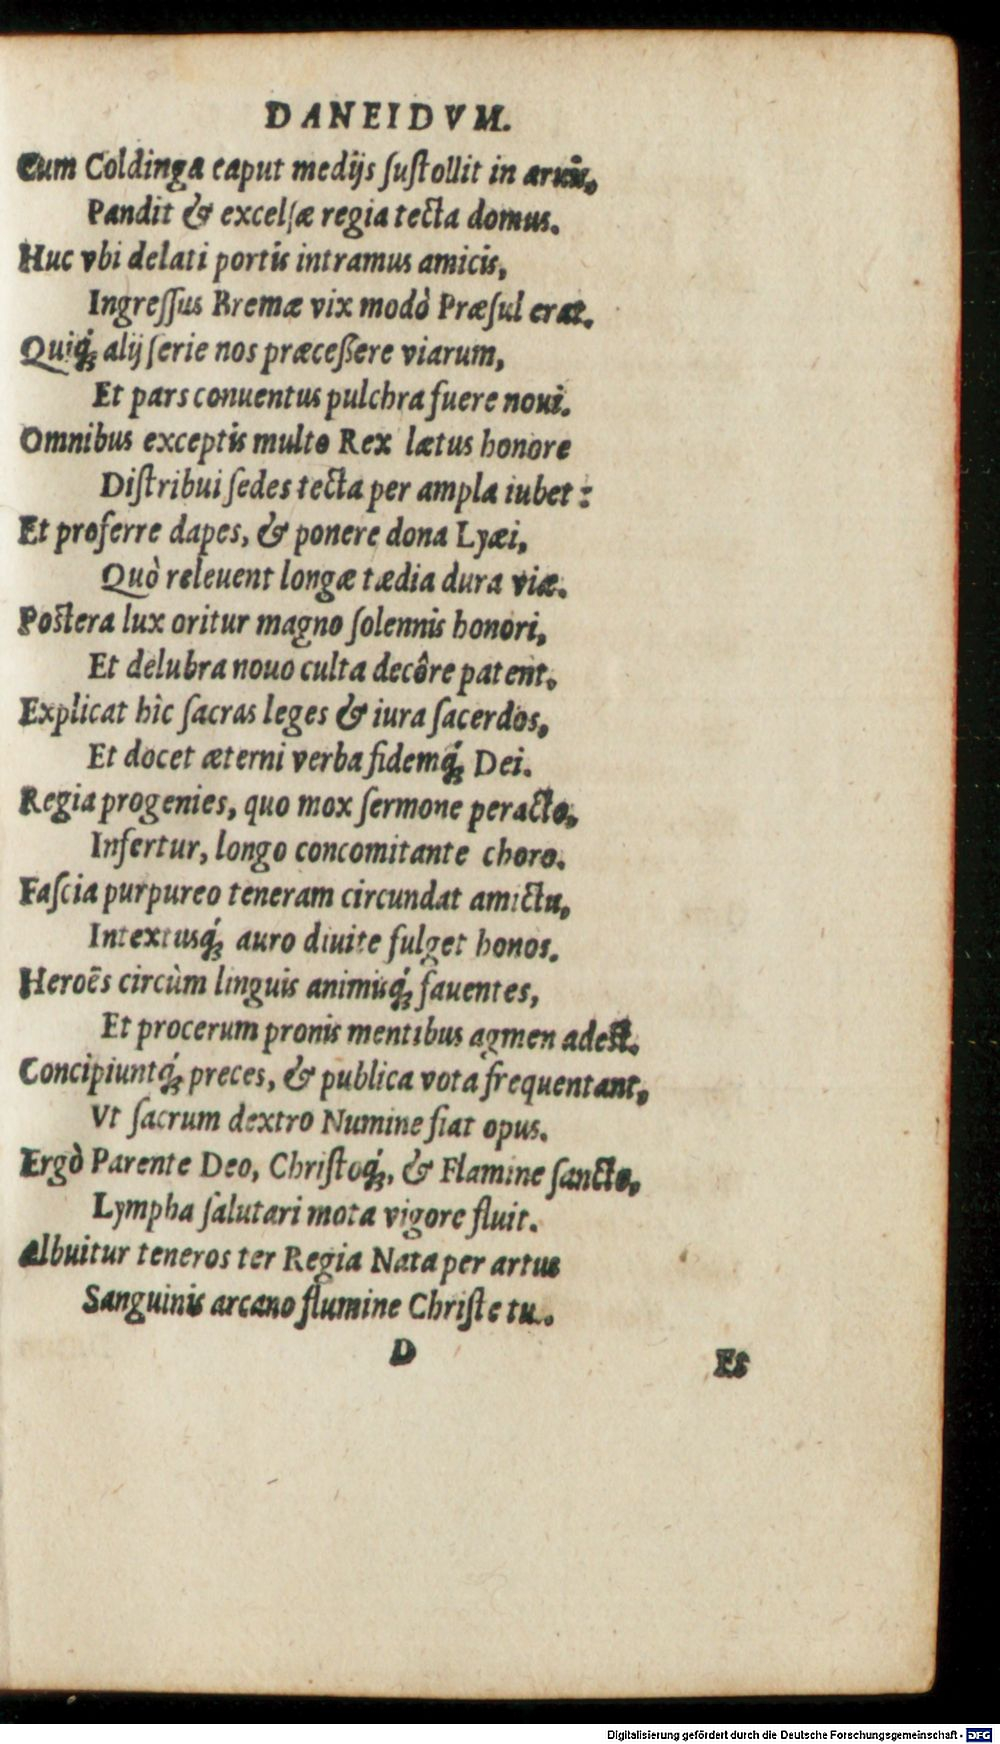 DANEIDVM.
Cum Coldinga caput medijs ſuſtollit in aruis,
Pandit & excelſæ regia tecta domus.
Huc vbi delati portis intramus amicis,
Ingreſſus Bremæ vix modò Præſul erat.
Quiq́; alij ſerie nos præceßere viarum,
Et pars conuentus pulchra fuere noui.
Omnibus exceptis multo Rex lætus honore
Diſtribui ſedes tecta per ampla iubet:
Et proferre dapes, & ponere dona Lyæi,
Quò releuent longæ tædia dura viæ.
Poſtera lux oritur magno ſolennis honori,
Et delubra nouo culta decôre patent.
Explicat hîc ſacras leges & iura ſacerdos,
Et docet æterni verba fidemq́; Dei.
Regia progenies, quo mox ſermone peracto,
Infertur, longo concomitante choro.
Faſcia purpureo teneram circundat amictu,
Intextusq́; auro diuite fulget honos.
Heroẽs circùm linguis animisq́; fauentes,
Et procerum pronis mentibus agmen adeſt.
Concipiuntq́; preces, & publica vota frequentant,
Vt ſacrum dextro Numine fiat opus.
Ergò Parente Deo, Chriſtoq́;, & Flamine ſancto,
Lympha ſalutari mota vigore fluit.
Albuitur teneros ter Regia Nata per artus
Sanguinis arcano flumine Chriſte tu.
D
Et
Digitalisierung gefördert durch die Deutsche Forschungsgemeinschaft - DFG